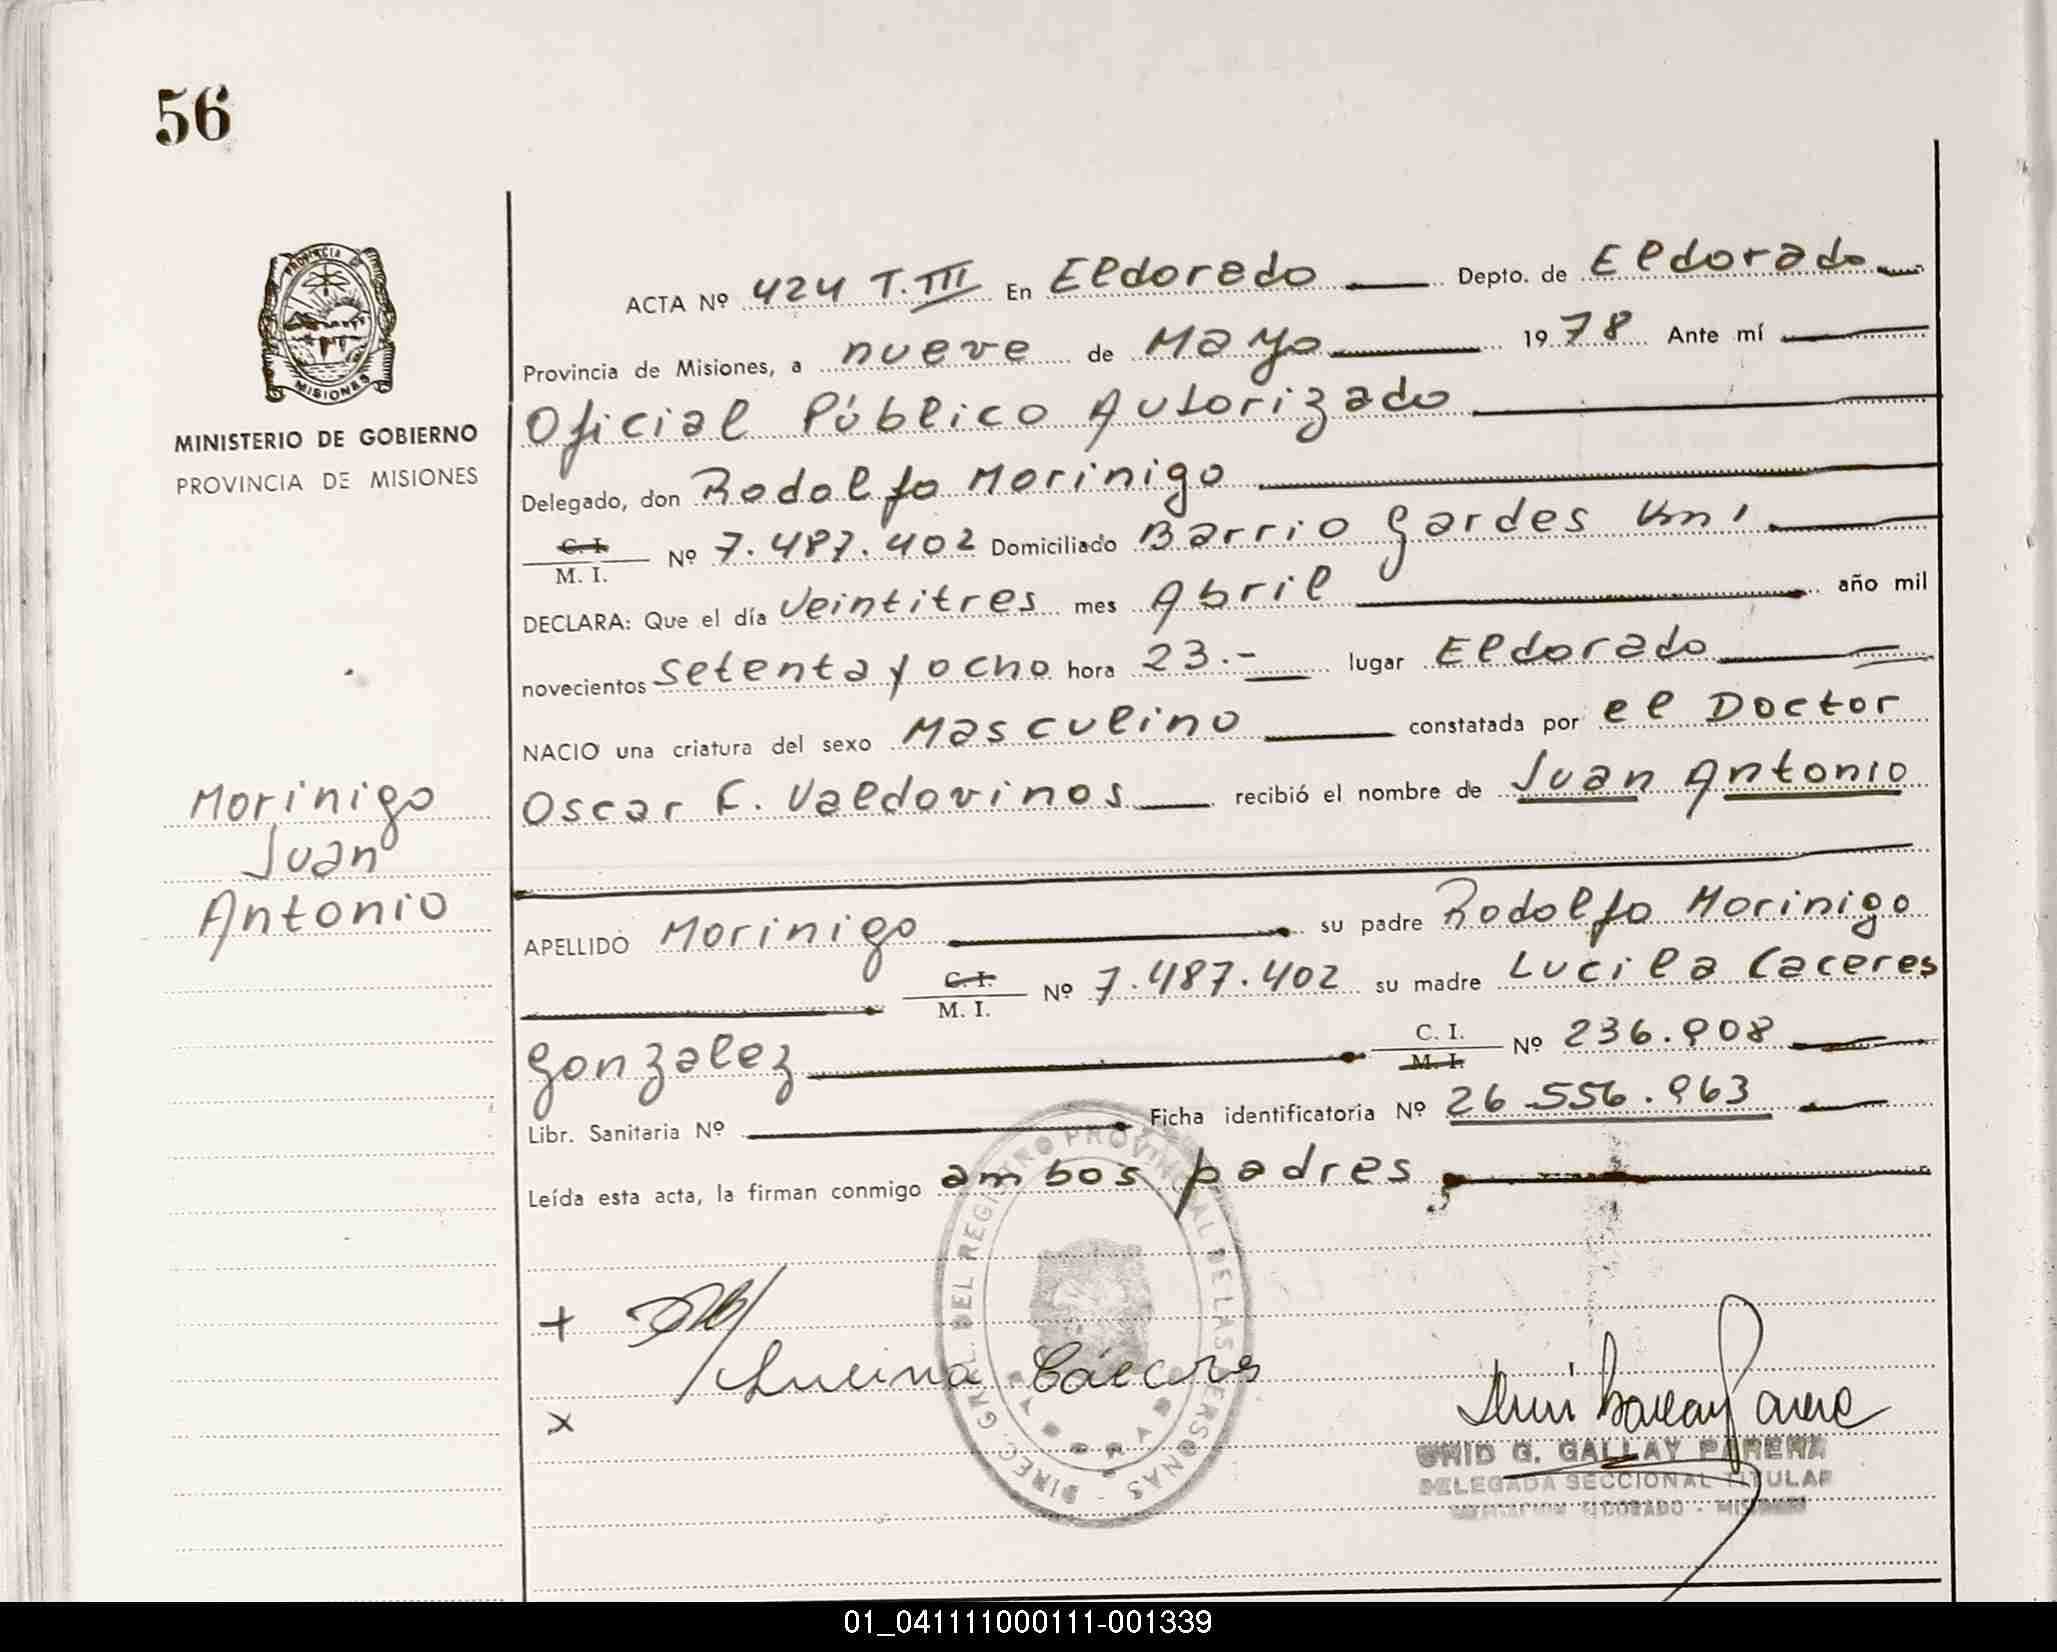 56
PROVINCIA DE
MISIONES
MINISTERIO DE GOBIERNO
PROVINCIA DE MISIONES
Morinigo
Juan
Antonio
ACTA Nº 424 T. III En Eldoredo Depto. de Eldorado
Provincia de Misiones, a nueve de Mayo 1978 Ante mí
Oficial Público Autorizado
Delegado, don Rodolfo Morinigo
C. I.
M. I. Nº 7.487.402 Domiciliado Barrio Gardes Km 1
DECLARA: Que el día Veintitres mes Abril año mil
novecientos setenta y ocho hora 23.- lugar Eldorado
NACIO una criatura del sexo Masculino constatada por el Doctor
Oscar F. Valdovinos recibió el nombre de Juan Antonio
APELLIDO Morinigo su padre Rodolfo Morinigo
C. I.
M. I. Nº 7.487.402 su madre Lucila Caceres
Gonzalez C. I.
M. I. Nº 236.908
Libr. Sanitaria Nº Ficha identificatoria Nº 26.556.963
Leída esta acta, la firman conmigo ambos padres
DIREC. GRAL. DEL REGISTRO PROVINCIAL DE LAS PERSONAS
+
Lucina Cáceres
x
G. GALLAY PARERA
DELEGADA SECCIONAL TITULAR
DELEGACION ELDORADO - MISIONES
01_041111000111-001339